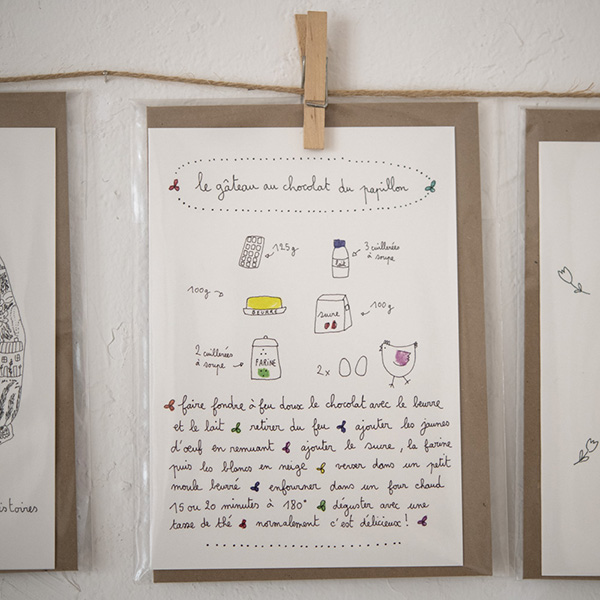 le gâteau au chocolat du papillon
125g
3 cuillerées
à soupe
lait
100g
BEURRE
sucre
100g
2 cuillerées
à soupe
FARINE
2x
faire fondre à feu doux le chocolat avec le beurre
et le lait retirer du feu ajouter les jaunes
d'œuf en remuant ajouter le sucre, la farine
puis les blancs en neige verser dans un petit
moule beurré enfourner dans un four chaud
15 ou 20 minutes à 180° déguster avec une
tasse de thé normalement c'est délicieux!
istoires